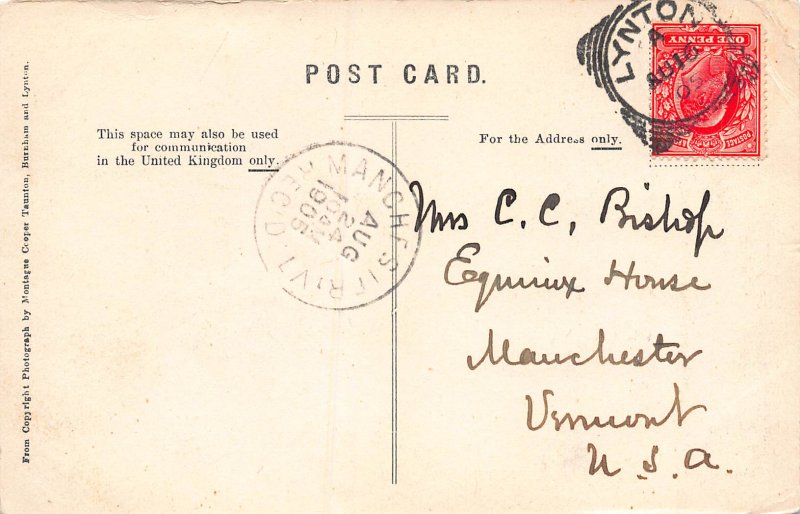 POST CARD.
This space may also be used
for communication
in the United Kingdom only.
For the Address only.
From Copyright Photograph by Montague Cooper Taunton, Burnham and Lynton.
LYNTON
A
AU 15
05
ONE PENNY
POSTAGE
MANCHESTER VT
AUG
24
10 AM
1905
REC'D
Mrs C. C. Bishop
Equinox House
Manchester
Vermont
U. S. A.